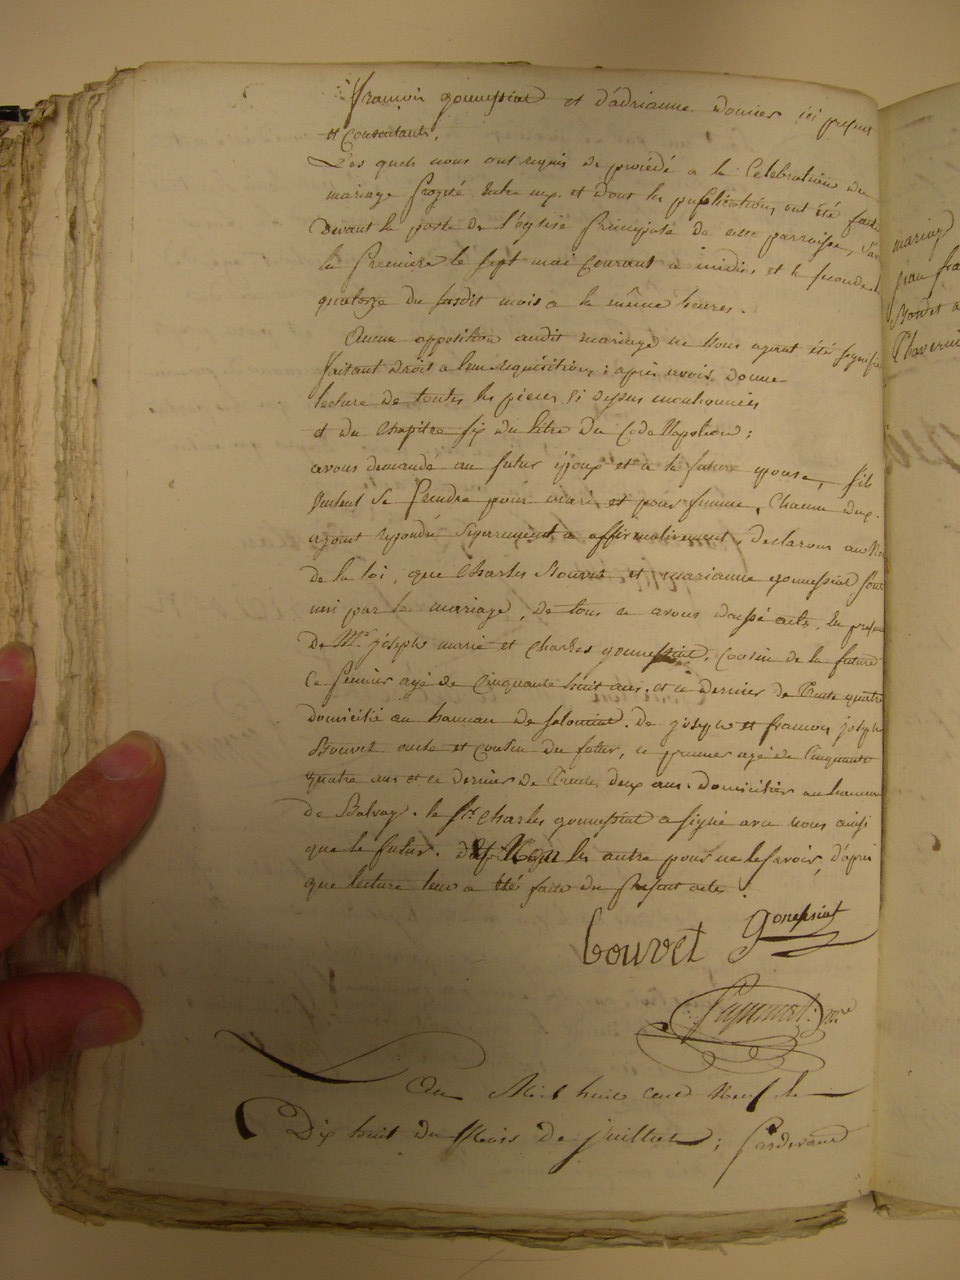 françois gonnessiat et d'adrianne Donier ici present
et Consentants.
Les quels nous ont requis de procédé a la Celebration du
mariage projeté entre eux et dont les publications ont été faite
Devant la porte de l'église principale de cette parroisse, 
la premiere le sept mai Courant a midis et la seconde le
quatorze du susdit mois a la même heures.
Aucune opposition audit mariage ne nous ayant été signifié
faisant droit a leur requisition; apres avoir donne
lecture de toutes les pieces ci dessus mentionnées
et du Chapitre six du titre du Code Napoleon;
avons demande au futur époux et a la future epouse, s'ils
veulent se prendre pour mari et pour femme, Chacun deux
ayant repondu separement et affirmativement, declarons au Nom
de la loi, que Charles Bouvet et marianne gonnessiat sont
uni par le mariage, de tous ce avons dressé acte, en presence
De Mrs joseph marie et Charles gonnessiat, cousin de la future
Ce premier agé de Cinquante huit ans. et ce dernier de trente quatre
domicilié au hameau de Solomiat. de joseph et françois joseph
Bouvet oncle et cousin du futur, ce premier agé de Cinquante
quatre ans et ce dernier de trente deux ans. domiciliés au hameau
de Balvay. le Sr Charles gonnessiat a signé avec nous ainsi
que le futur. les autre pour ne le savoir, d'apres
que lecture leur a été faite du present acte.
bouvet gonessiat
mre
L'an Mil huit Cent Neuf le
Dix huit du Mois de juillet; pardevant
mariage
jean fra
Bordet